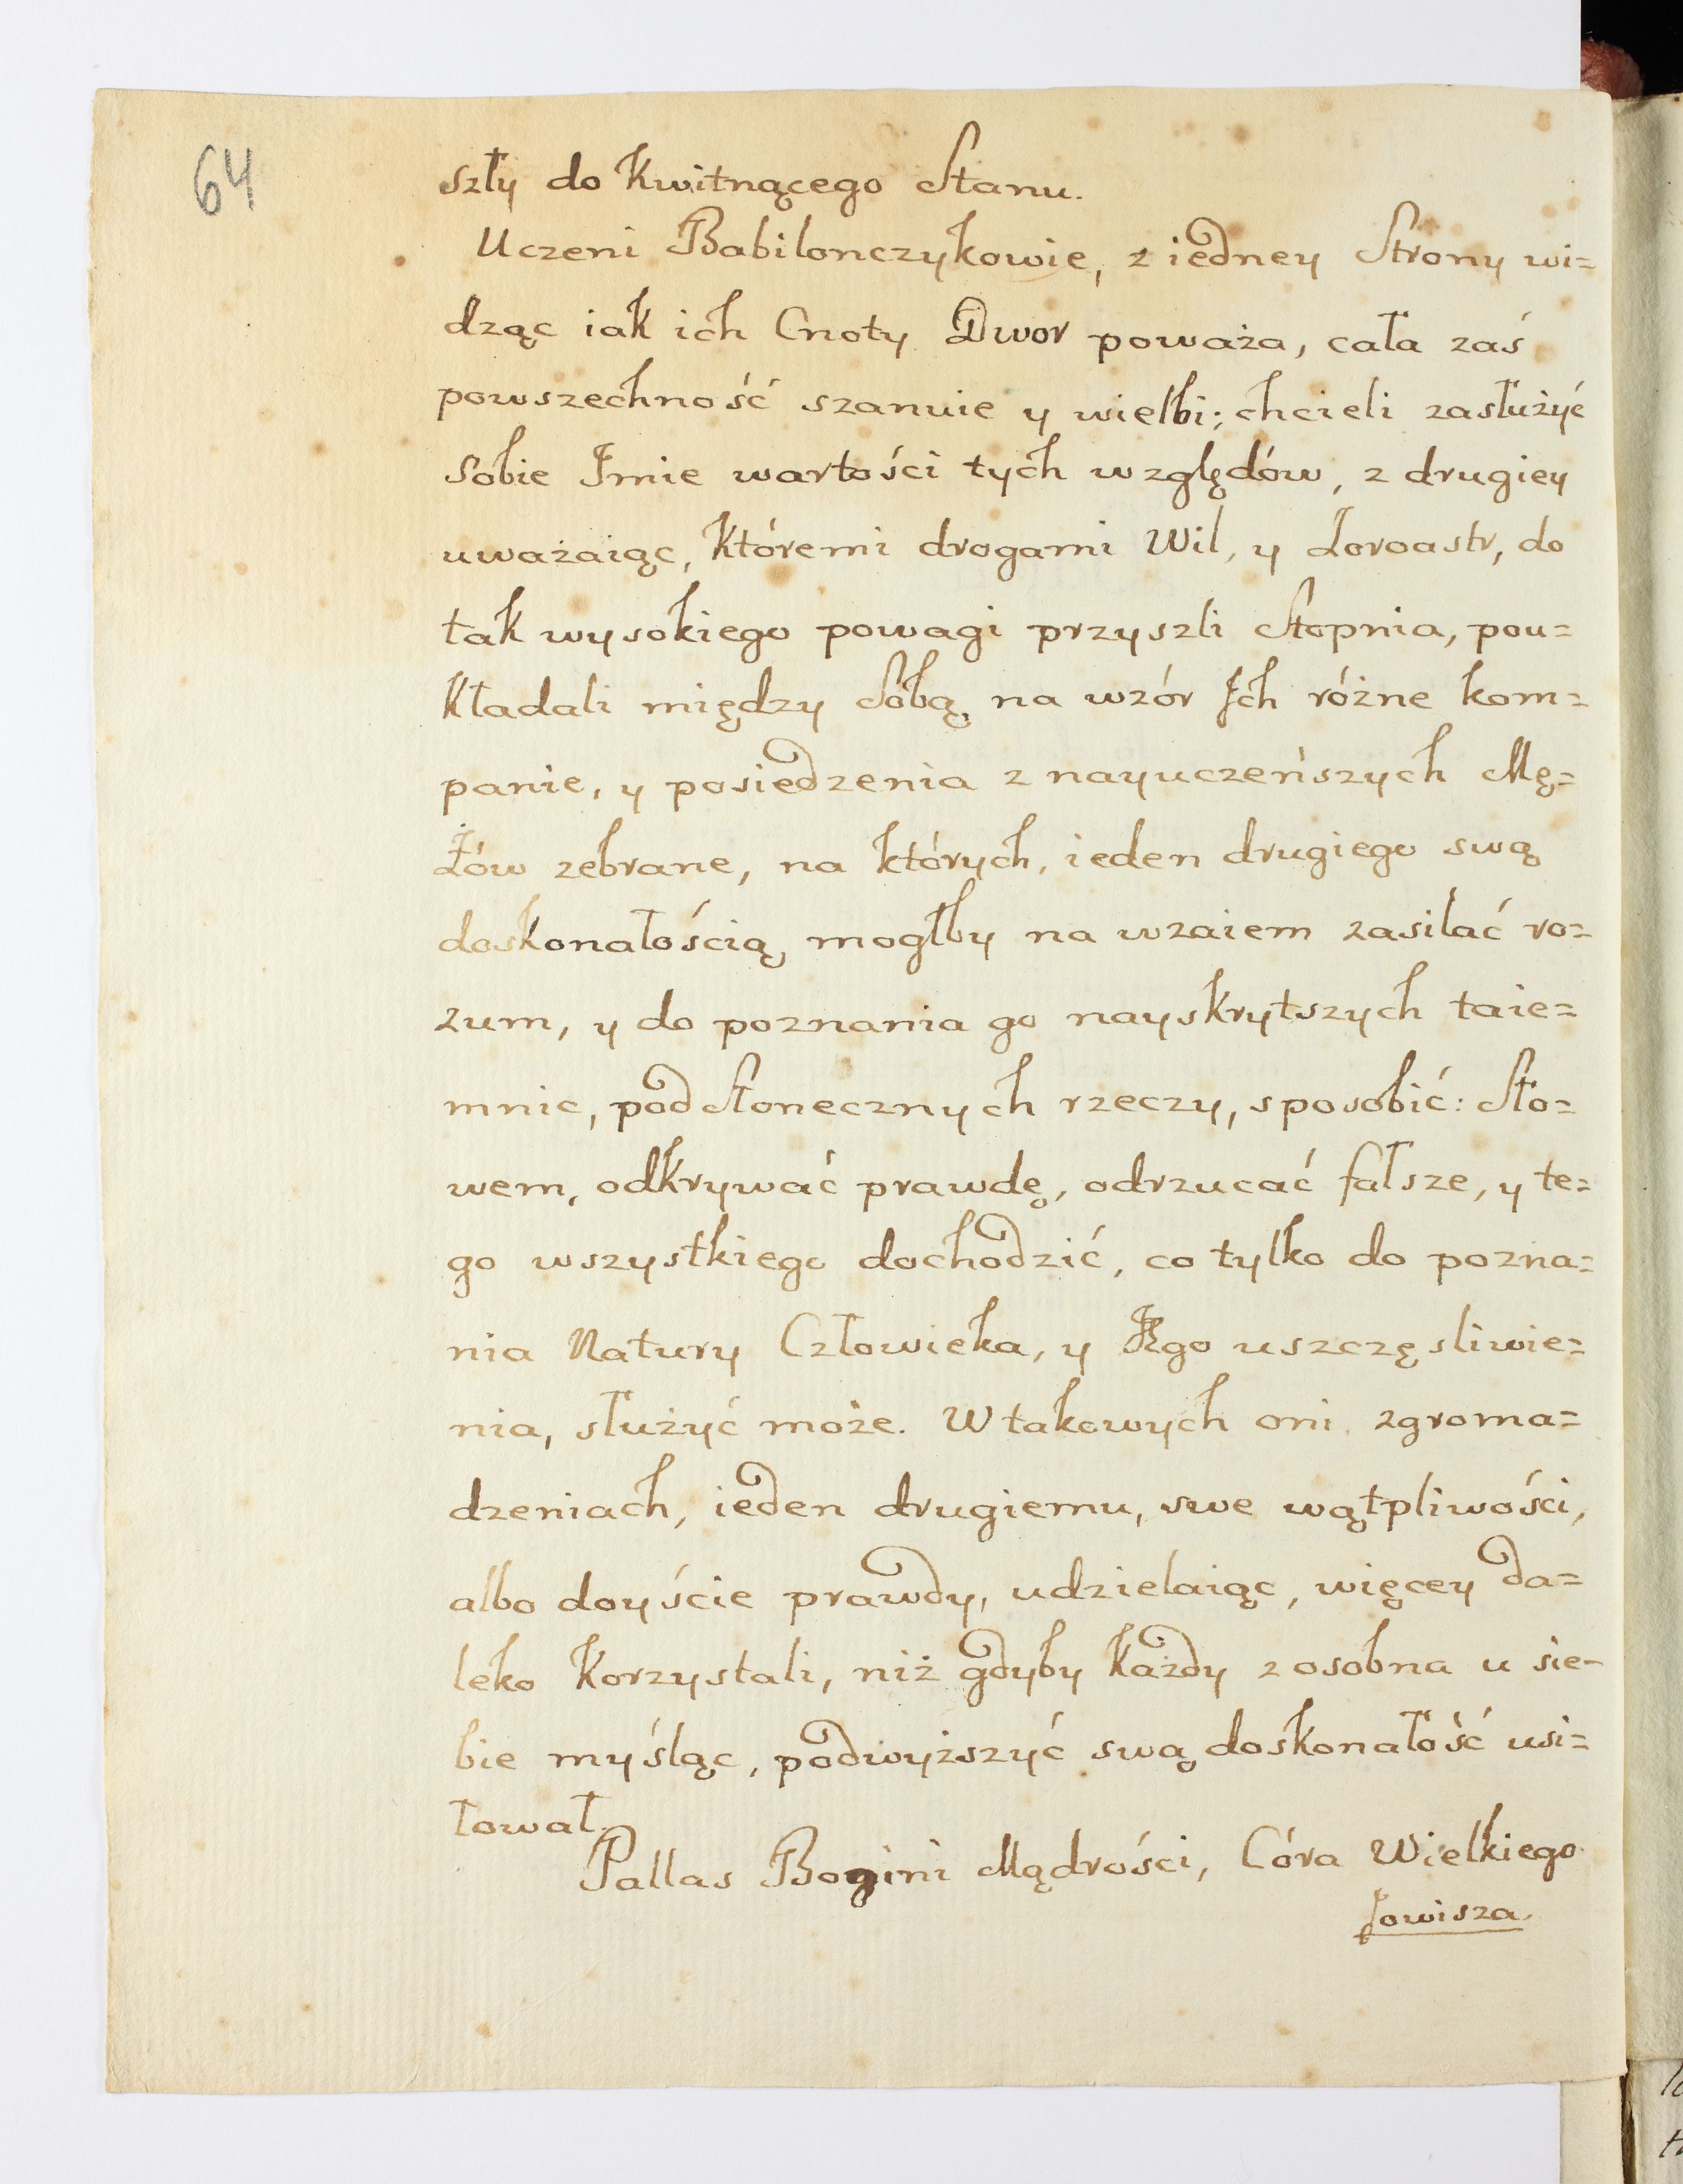 64
szły do Kwitnącego Stanu.
Uczeni Babilonczykowie, z iedney Strony wi=
dząc iak ich Cnoty Dwor poważa, cała zaś
powszechność szanuie y wielbi; chcieli zasłużyć
Sobie Imie wartości tych względów, z drugiey
uważaiąc, Któremi drogami Wil, y Zoroastr, do
tak wysokiego powagi przyszli Stopnia, pou=
Kładali między Sobą, na wzór Ich różne kom=
panie, y posiedzenia z nayuczeńszych Mę=
Żów zebrane, na których, ieden drugiego swą
doskonałością mogłby na wzaiem zasilać ro=
zum, y do poznania go nayskrytszych taie=
mnic, podSłonecznych rzeczy, sposobić: Sło=
wem, odkrywać prawdę, odrzucać fałsze, y te=
go wszystkiego dochodzić, co tylko do pozna=
nia Natury Człowieka, y Jego uszczęsliwie=
nia, służyć może. W takowych oni zgroma=
dzeniach, ieden drugiemu, swe wątpliwości,
albo doyście prawdy, udzielaiąc, więcey da=
leko Korzystali, niż gdyby Każdy z osobna u sie=
bie myśląc, podwyższyć swą doskonałość usi=
łował.
Pallas Bogini Mądrości, Córa Wielkiego
Jowisza.